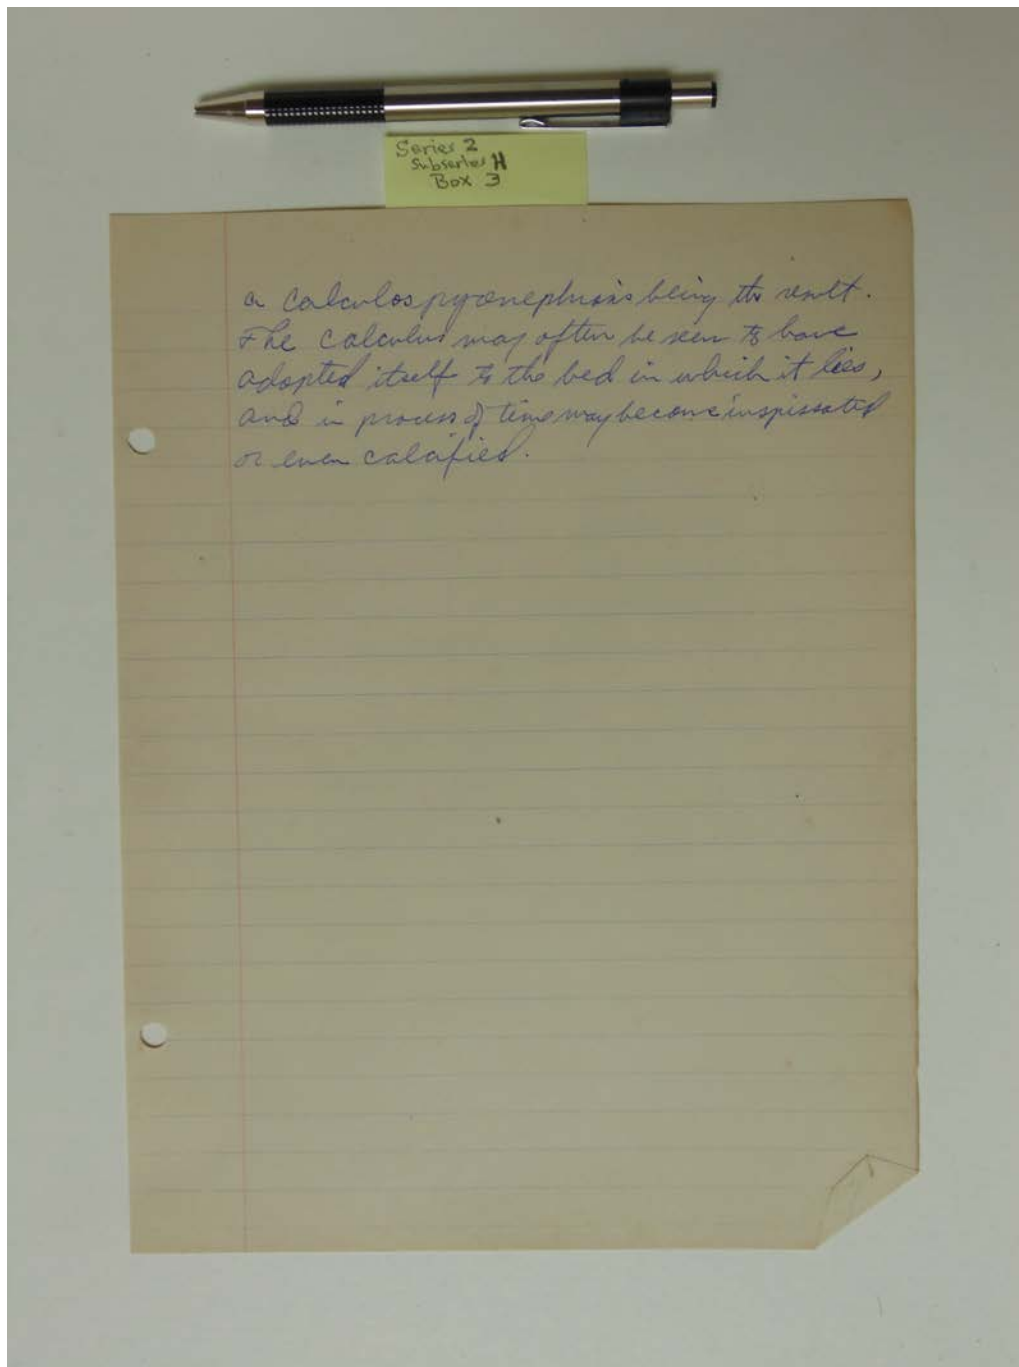 Series 2
Subseries H
Box 3
a calculos pyonephrosis being the result.
The calculus may often be seen to have
adopted itself to the bed in which it lies,
and in process of time may become inspissated
or even calcified.